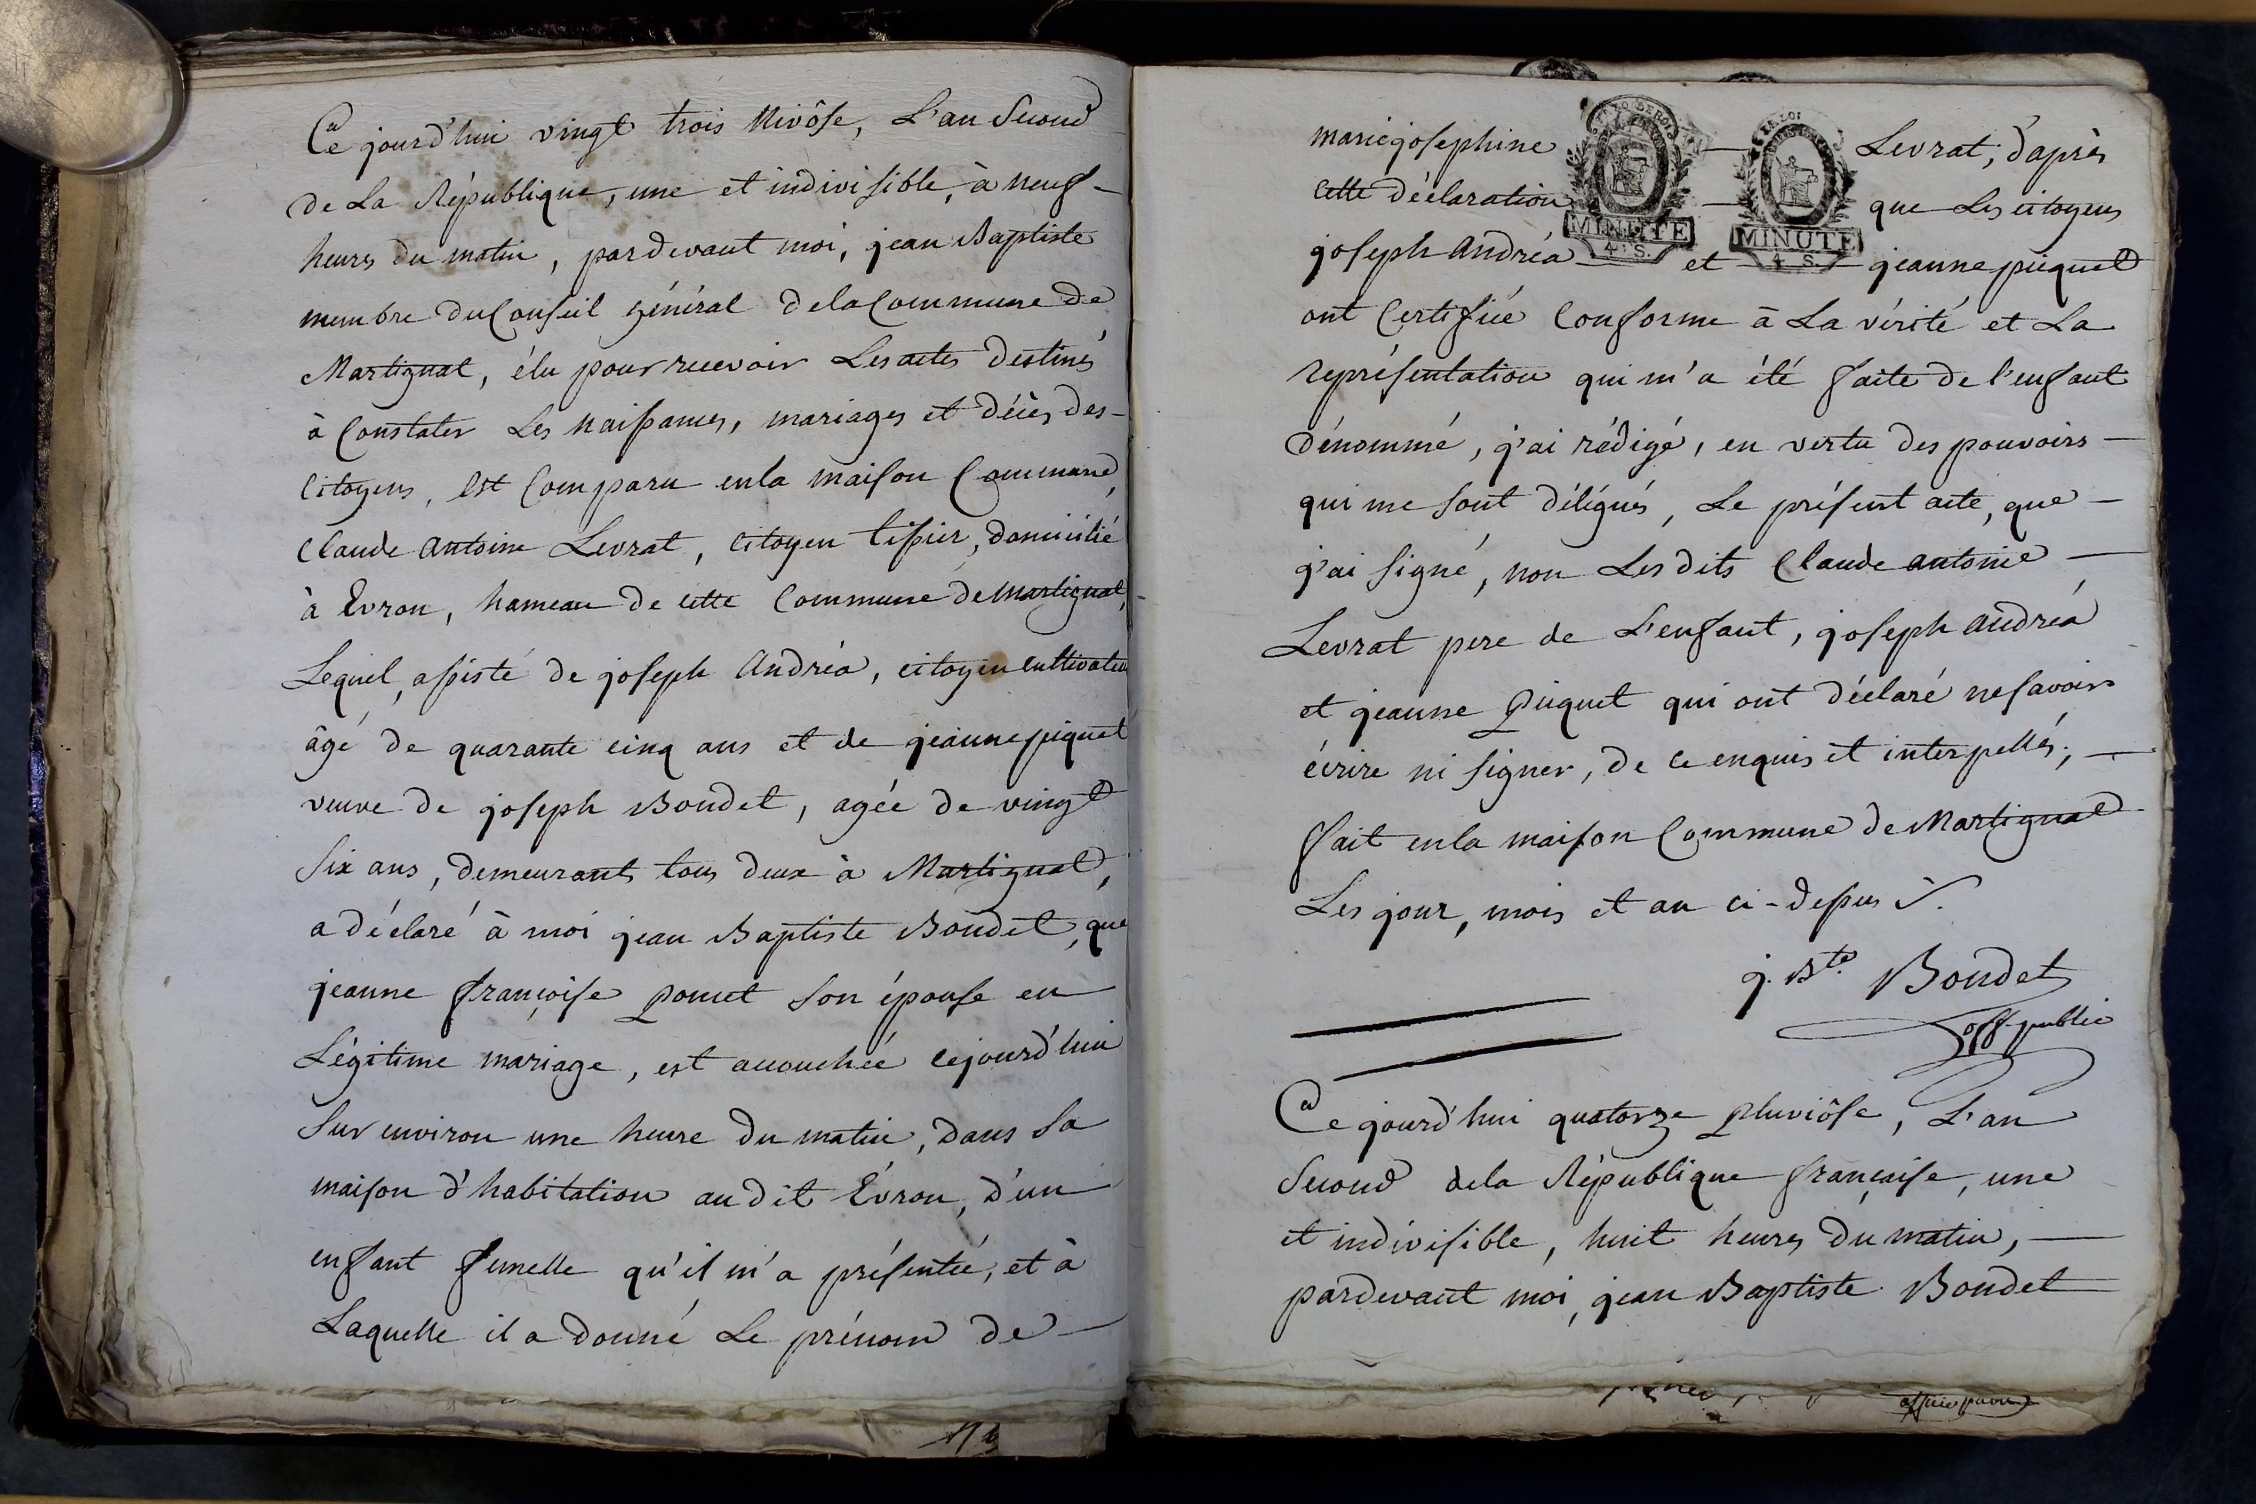 Ce jourd'hui vingt trois Nivôse, L'an Second
de La République, une et indivisible, à neuf
heures du matin, pardevant moi, jean Baptiste
membre du Conseil général de la Commune de
Martignat, élu pour recevoir Les actes destinés
à Constater Les naissances, mariages et décès des
Citoyens, est Comparu en la maison Commune,
Claude antoine Levrat, citoyen tissier, domicilié
à Evron, hameau de cette Commune de Martignat,
Lequel, assisté de joseph andréa, citoyen cultivateur
âgé de quarante cinq ans et de jeanne piquet
veuve de joseph Bondet, agée de vingt
six ans, demeurants tous deux à Martignat,
a déclaré à moi jean Baptiste Bondet, que
jeanne françoise poncet son épouse en
Légitime mariage, est accouchée cejourd'hui
Sur environ une heure du matin, dans Sa
maison d'habitation au dit Evron, d'un
enfant femelle qu'il m'a présentée, et à
Laquelle il a donné Le prénom de
marie josephine Levrat, d'après
cette déclaration que Les citoyens
joseph andréa et jeanne piquet
ont Certifiée Conforme à La vérité et La
représentation qui m'a été faite de l'enfant
dénommé, j'ai rédigé, en vertu des pouvoirs
qui me sont délégués, Le présent acte, que
j'ai signé, non Les dits Claude antoine
Levrat pere de L'enfant, joseph andréa
et jeanne piquet qui ont déclaré ne savoir
écrire ni signer, de ce enquis et interpellés,
fait en la maison Commune de Martignat
Les jour, mois et an ci-dessus
MINUTE
4. S.
MINUTE
4. S.
j. Bte. Bondet
off. public
Ce jourd'hui quatorze pluviôse, L'an
Second de la République française, une
et indivisible, huit heures du matin,
pardevant moi, jean Baptiste Bondet